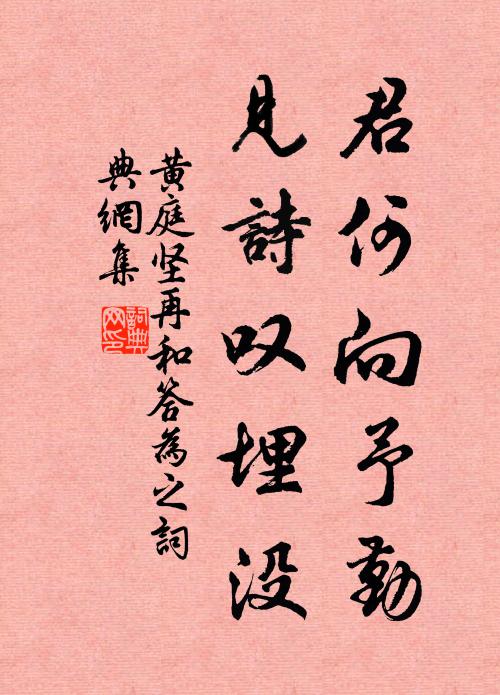 君何向予勤
見詩叹埋没
黄庭坚再和答為之詞
典網集
詞典
网印